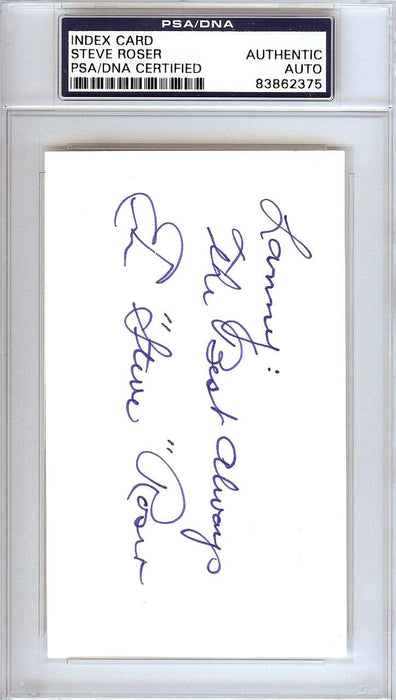 PSA/DNA
INDEX CARD
STEVE ROSER
PSA/DNA CERTIFIED
AUTHENTIC
AUTO
83862375
Lammy:
The Best Always
"Steve" Roser